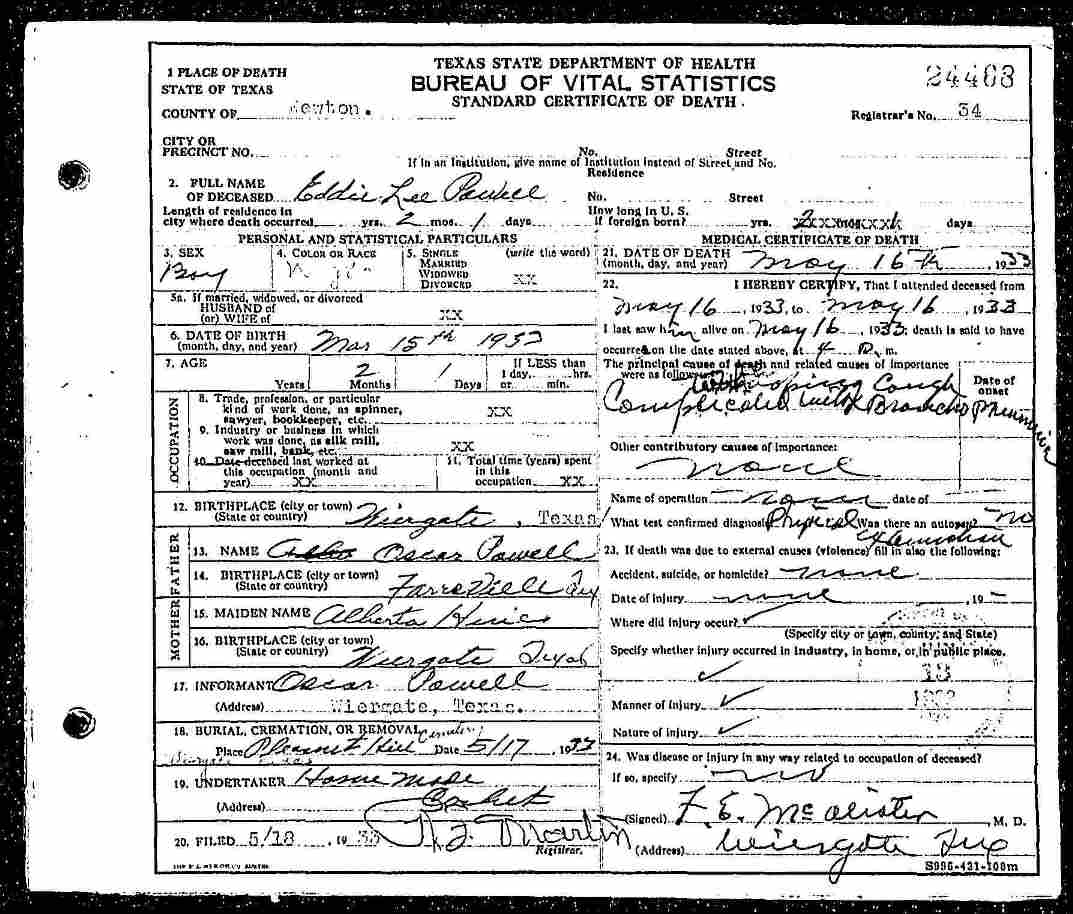 TEXAS STATE DEPARTMENT OF HEALTH
BUREAU OF VITAL STATISTICS
STANDARD CERTIFICATE OF DEATH.
24403
Registrar's No. 34
1 PLACE OF DEATH
STATE OF TEXAS
COUNTY OF Newton.
CITY OR
PRECINCT NO. No. Street
If in an Institution, give name of Institution instead of Street and No.
2. FULL NAME
OF DECEASED Eddie Lee Powell
Residence
No. Street
Length of residence in
city where death occurred yrs. 2 mos. 1 days
How long in U. S.
if foreign born? yrs. days
PERSONAL AND STATISTICAL PARTICULARS
3. SEX
Boy
4. COLOR OR RACE
5. SINGLE (write the word)
MARRIED
WIDOWED
DIVORCED XX
5a. If married, widowed, or divorced
HUSBAND of
(or) WIFE of XX
6. DATE OF BIRTH
(month, day, and year) Mar 15th 1933
7. AGE
Years 2 Months 1 Days
If LESS than
1 day, hrs.
or min.
OCCUPATION
8. Trade, profession, or particular
kind of work done, as spinner,
sawyer, bookkeeper, etc. XX
9. Industry or business in which
work was done, as silk mill,
saw mill, bank, etc. XX
10. Date deceased last worked at
this occupation (month and
year) XX
11. Total time (years) spent
in this
occupation XX
12. BIRTHPLACE (city or town) Wiergate, Texas
(State or country)
FATHER
13. NAME Oscar Powell
14. BIRTHPLACE (city or town)
(State or country) Tex
MOTHER
15. MAIDEN NAME Alberta Hines
16. BIRTHPLACE (city or town)
(State or country) Wiergate Texas
17. INFORMANT Oscar Powell
(Address) Wiergate, Texas.
18. BURIAL, CREMATION, OR REMOVAL Cemetery
Place Pleasant Hill Date 5/17, 1933
Wiergate Texas
19. UNDERTAKER Home Made
(Address) Casket
20. FILED 5/18 1933 Martin
Registrar.
MEDICAL CERTIFICATE OF DEATH
21. DATE OF DEATH
(month, day, and year) May 16th, 1933
22. I HEREBY CERTIFY, That I attended deceased from
May 16, 1933, to May 16, 1933
I last saw him alive on May 16, 1933; death is said to have
occurred on the date stated above, at 4 P. m.
The principal cause of death and related causes of importance
were as follows: Whooping Cough
Complicated with Broncho Pneumonia
Date of
onset
Other contributory causes of importance:
None
Name of operation none date of
What test confirmed diagnosis? Physical Examination Was there an autopsy? no
23. If death was due to external causes (violence) fill in also the following:
Accident, suicide, or homicide? none
Date of injury none, 19
Where did injury occur?
(Specify city or town, county, and State)
Specify whether injury occurred in industry, in home, or in public place.
Manner of injury
Nature of injury
24. Was disease or injury in any way related to occupation of deceased?
If so, specify no
(Signed) F. E. McAlister, M. D.
(Address) Wiergate Tex
S996-431-100m